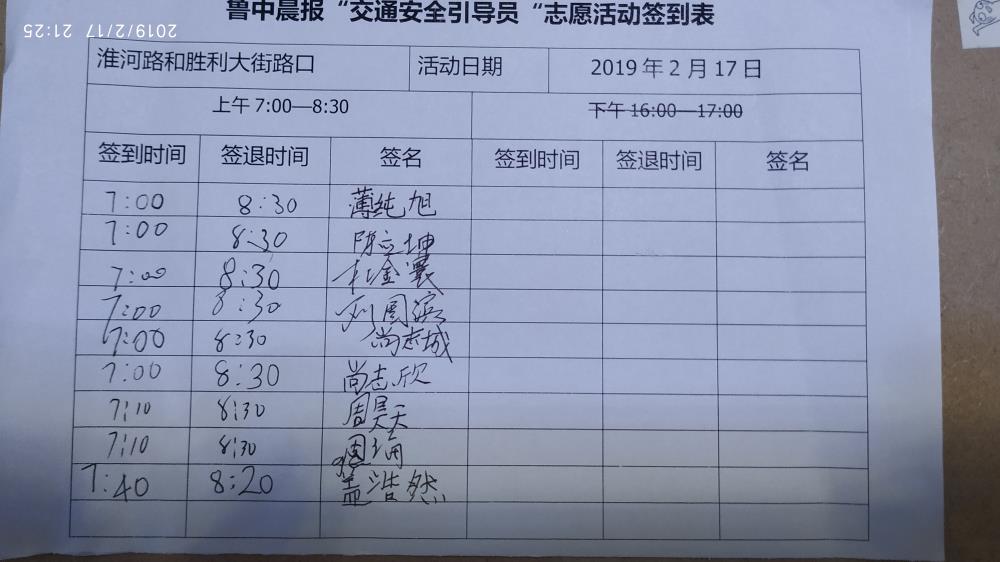 鲁中晨报“交通安全引导员“志愿活动签到表
2019/2/17 21:25
淮河路和胜利大街路口 活动日期 2019年2月17日
上午7:00—8:30 下午16:00—17:00
签到时间 签退时间 签名 签到时间 签退时间 签名
7:00 8:30 薄纯旭
7:00 8:30 陈立坤
7:00 8:30 杜金
7:00 8:30 刘国滨
7:00 8:30 尚志城
7:00 8:30 尚志欣
7:10 8:30 周昊天
7:10 8:30
7:40 8:20 孟浩然